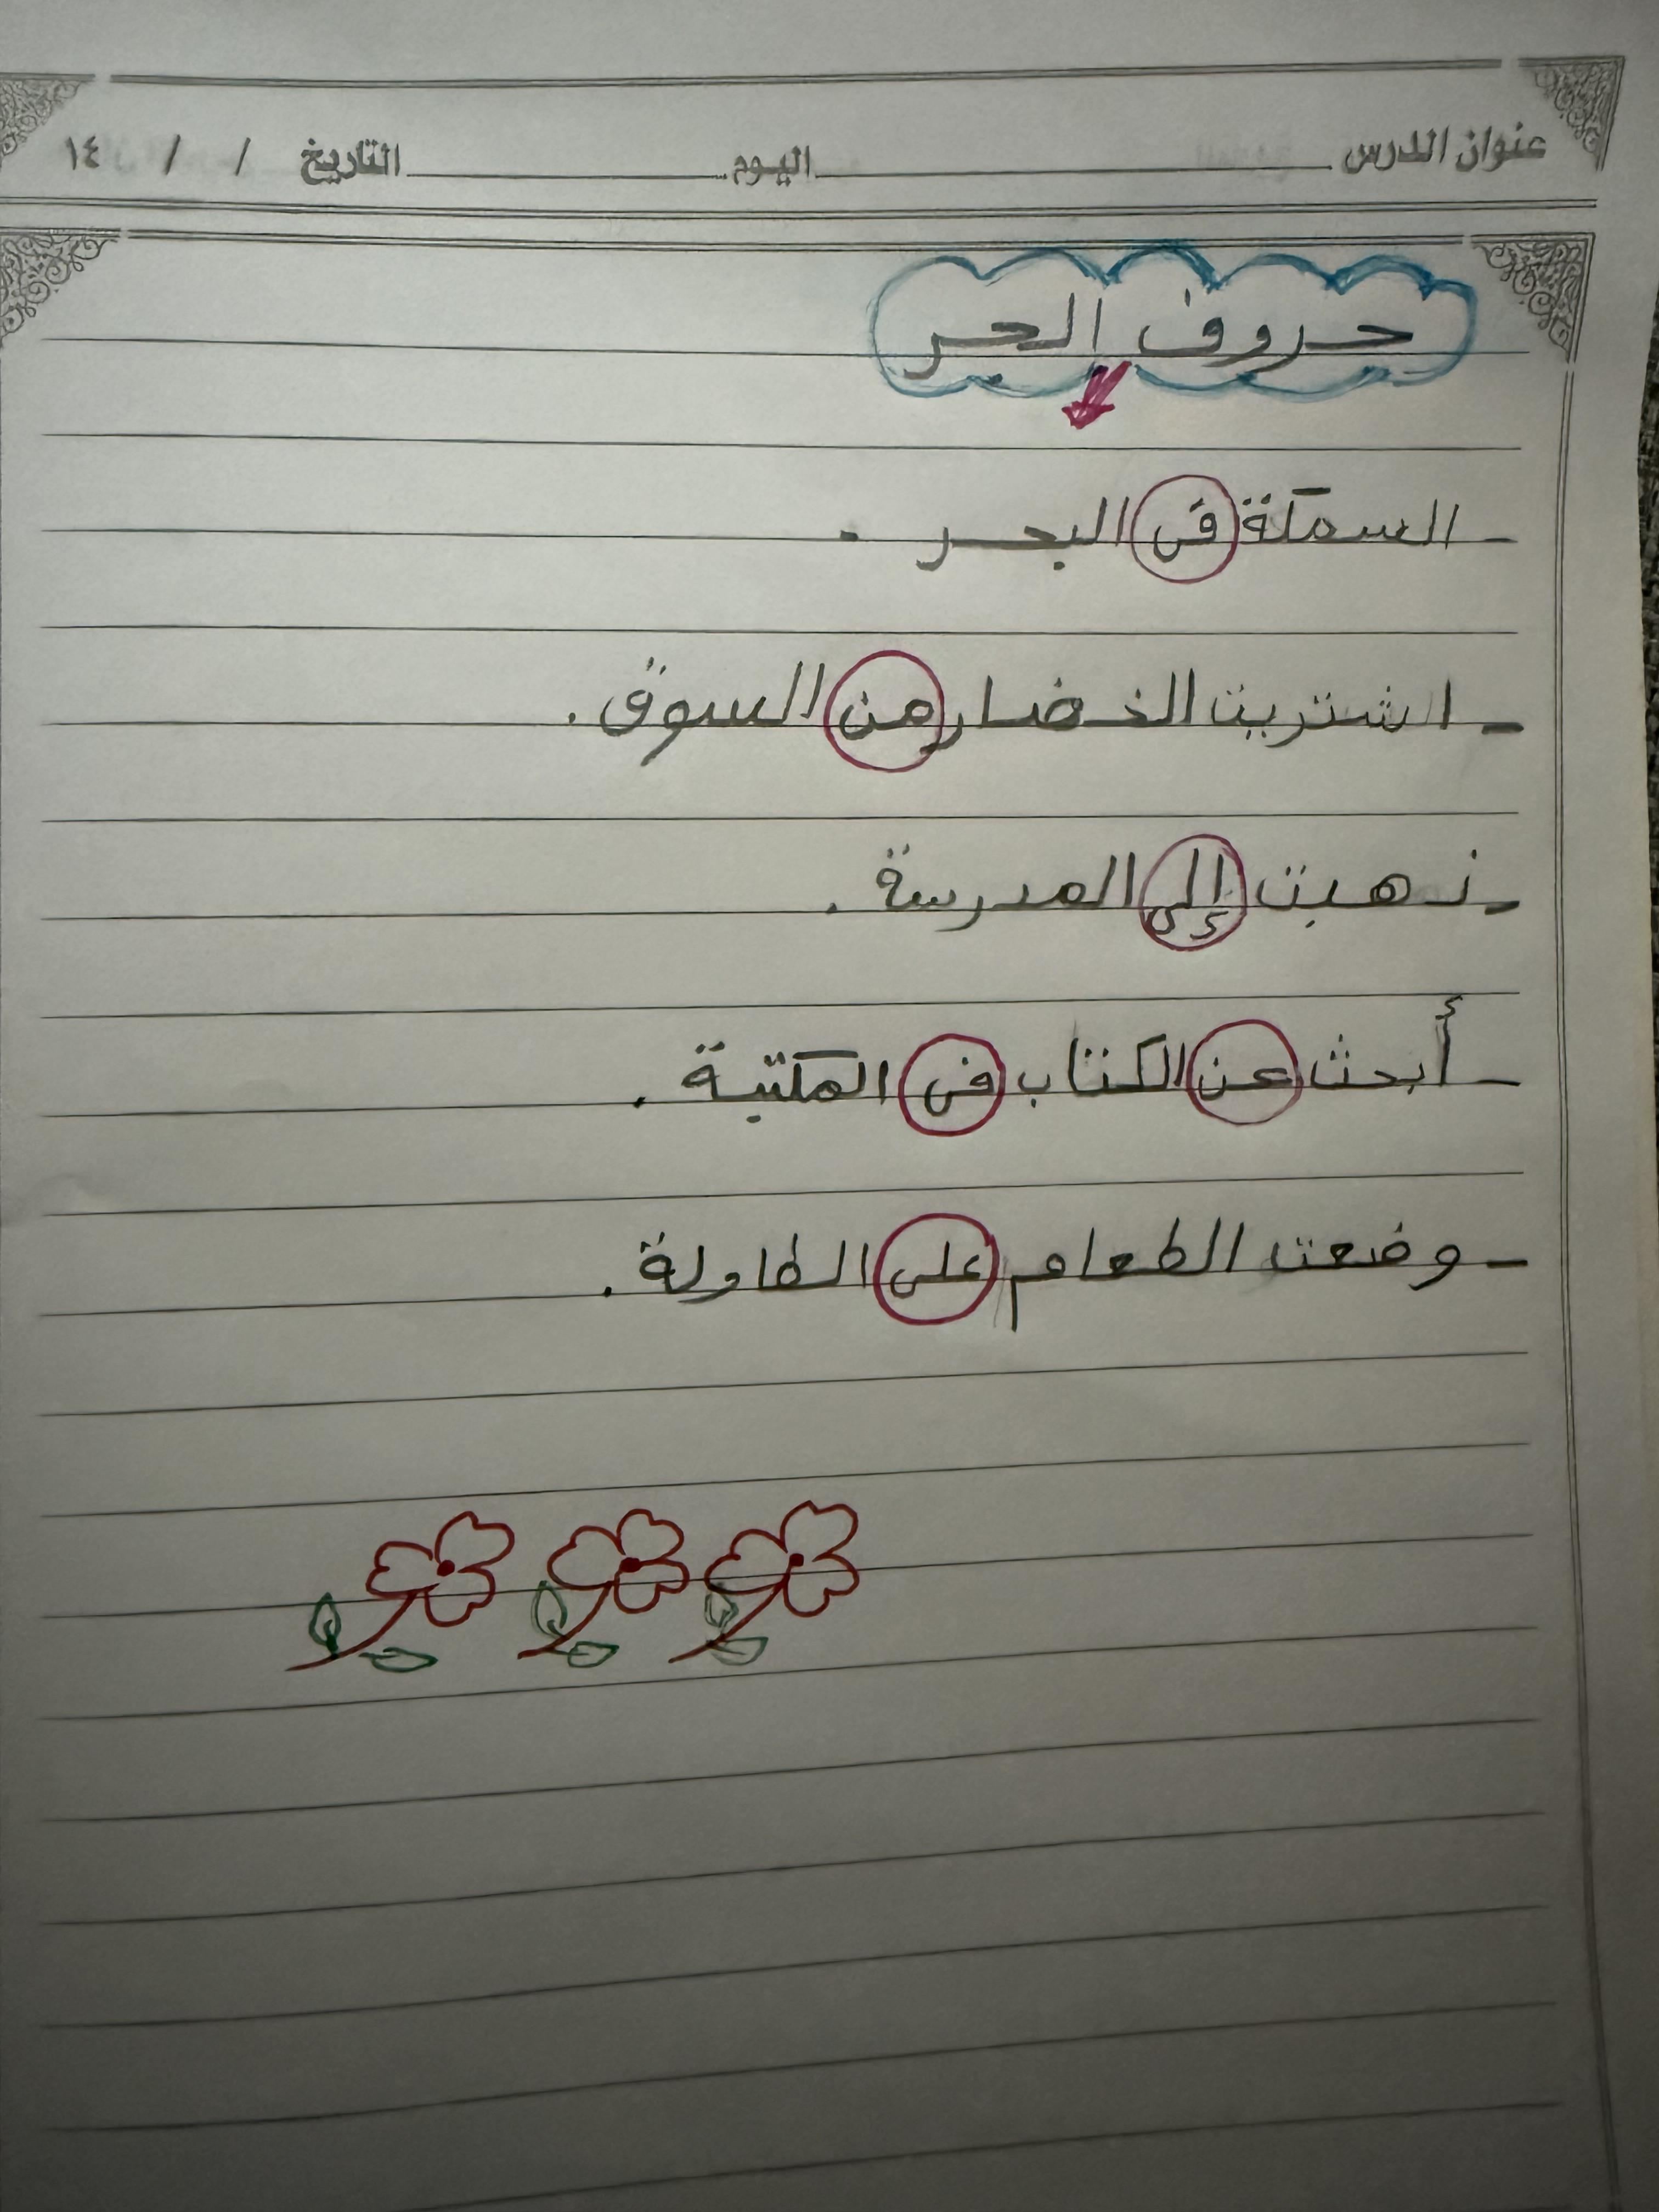 عنوان الدرس اليوم التاريخ / / ١٤
حروف الجر
- السمكة في البحر .
- اشتريت الخضار من السوق .
- ذهبت إلى المدرسة .
- أبحث عن الكتاب في المكتبة .
- وضعت الطعام على الطاولة .